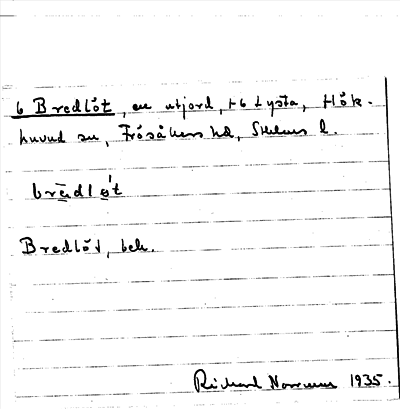 6 Bredlöt, en utjord, t. Lysta, Hök-
huvud sn, Frösåkers hd, Sthlms l.
brēdløt
Bredlöt, bek.
Richard 1935.